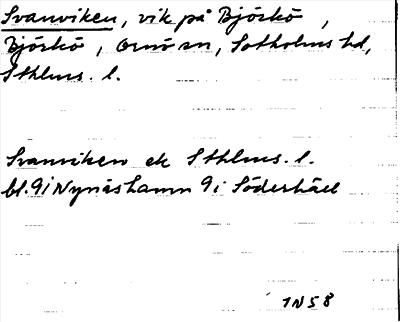 Svanviken, vik på Björkö,
Björkö, Ornö sn, Sotholms hd,
Sthlms. l.
Svanviken ek Sthlms. l.
bl. 9i Nynäshamn 9i Söderhäll
1N58